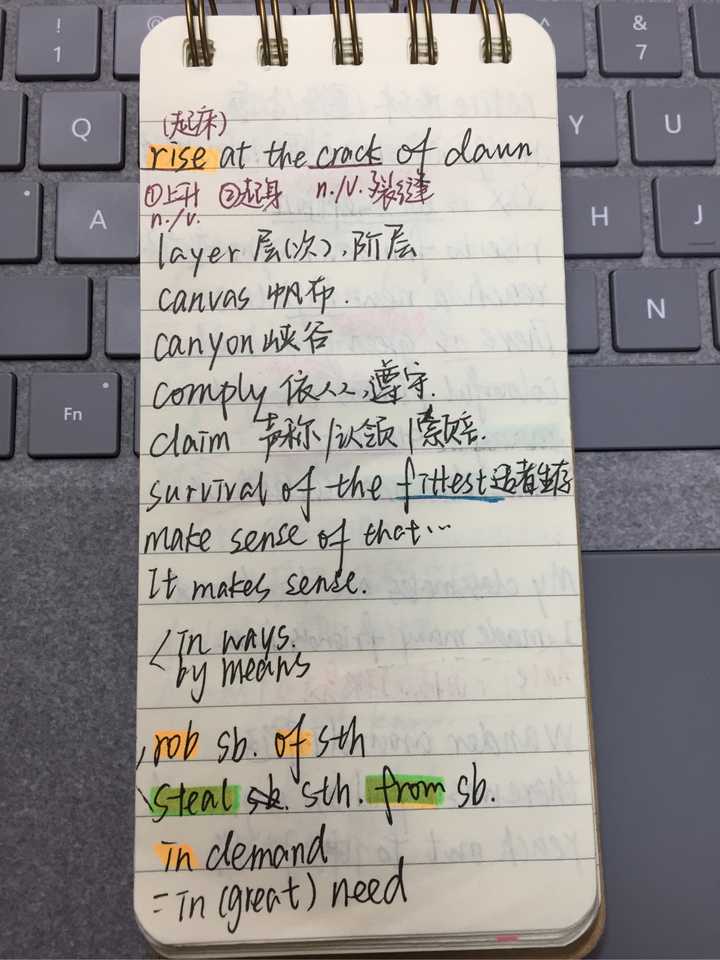 ! 1
& 7
Q
Y
U
A
H
J
N
Fn
(起床)
rise at the crack of dawn
①上升 ②起身 n./v. 裂缝
n./v.
layer 层(次),阶层
canvas 帆布.
canyon 峡谷
comply 依从,遵守.
claim 声称/认领/索赔.
survival of the fittest 适者生存
make sense of that…
It makes sense.
in ways.
by means
rob sb. of sth
steal sth. from sb.
in demand
=in (great) need